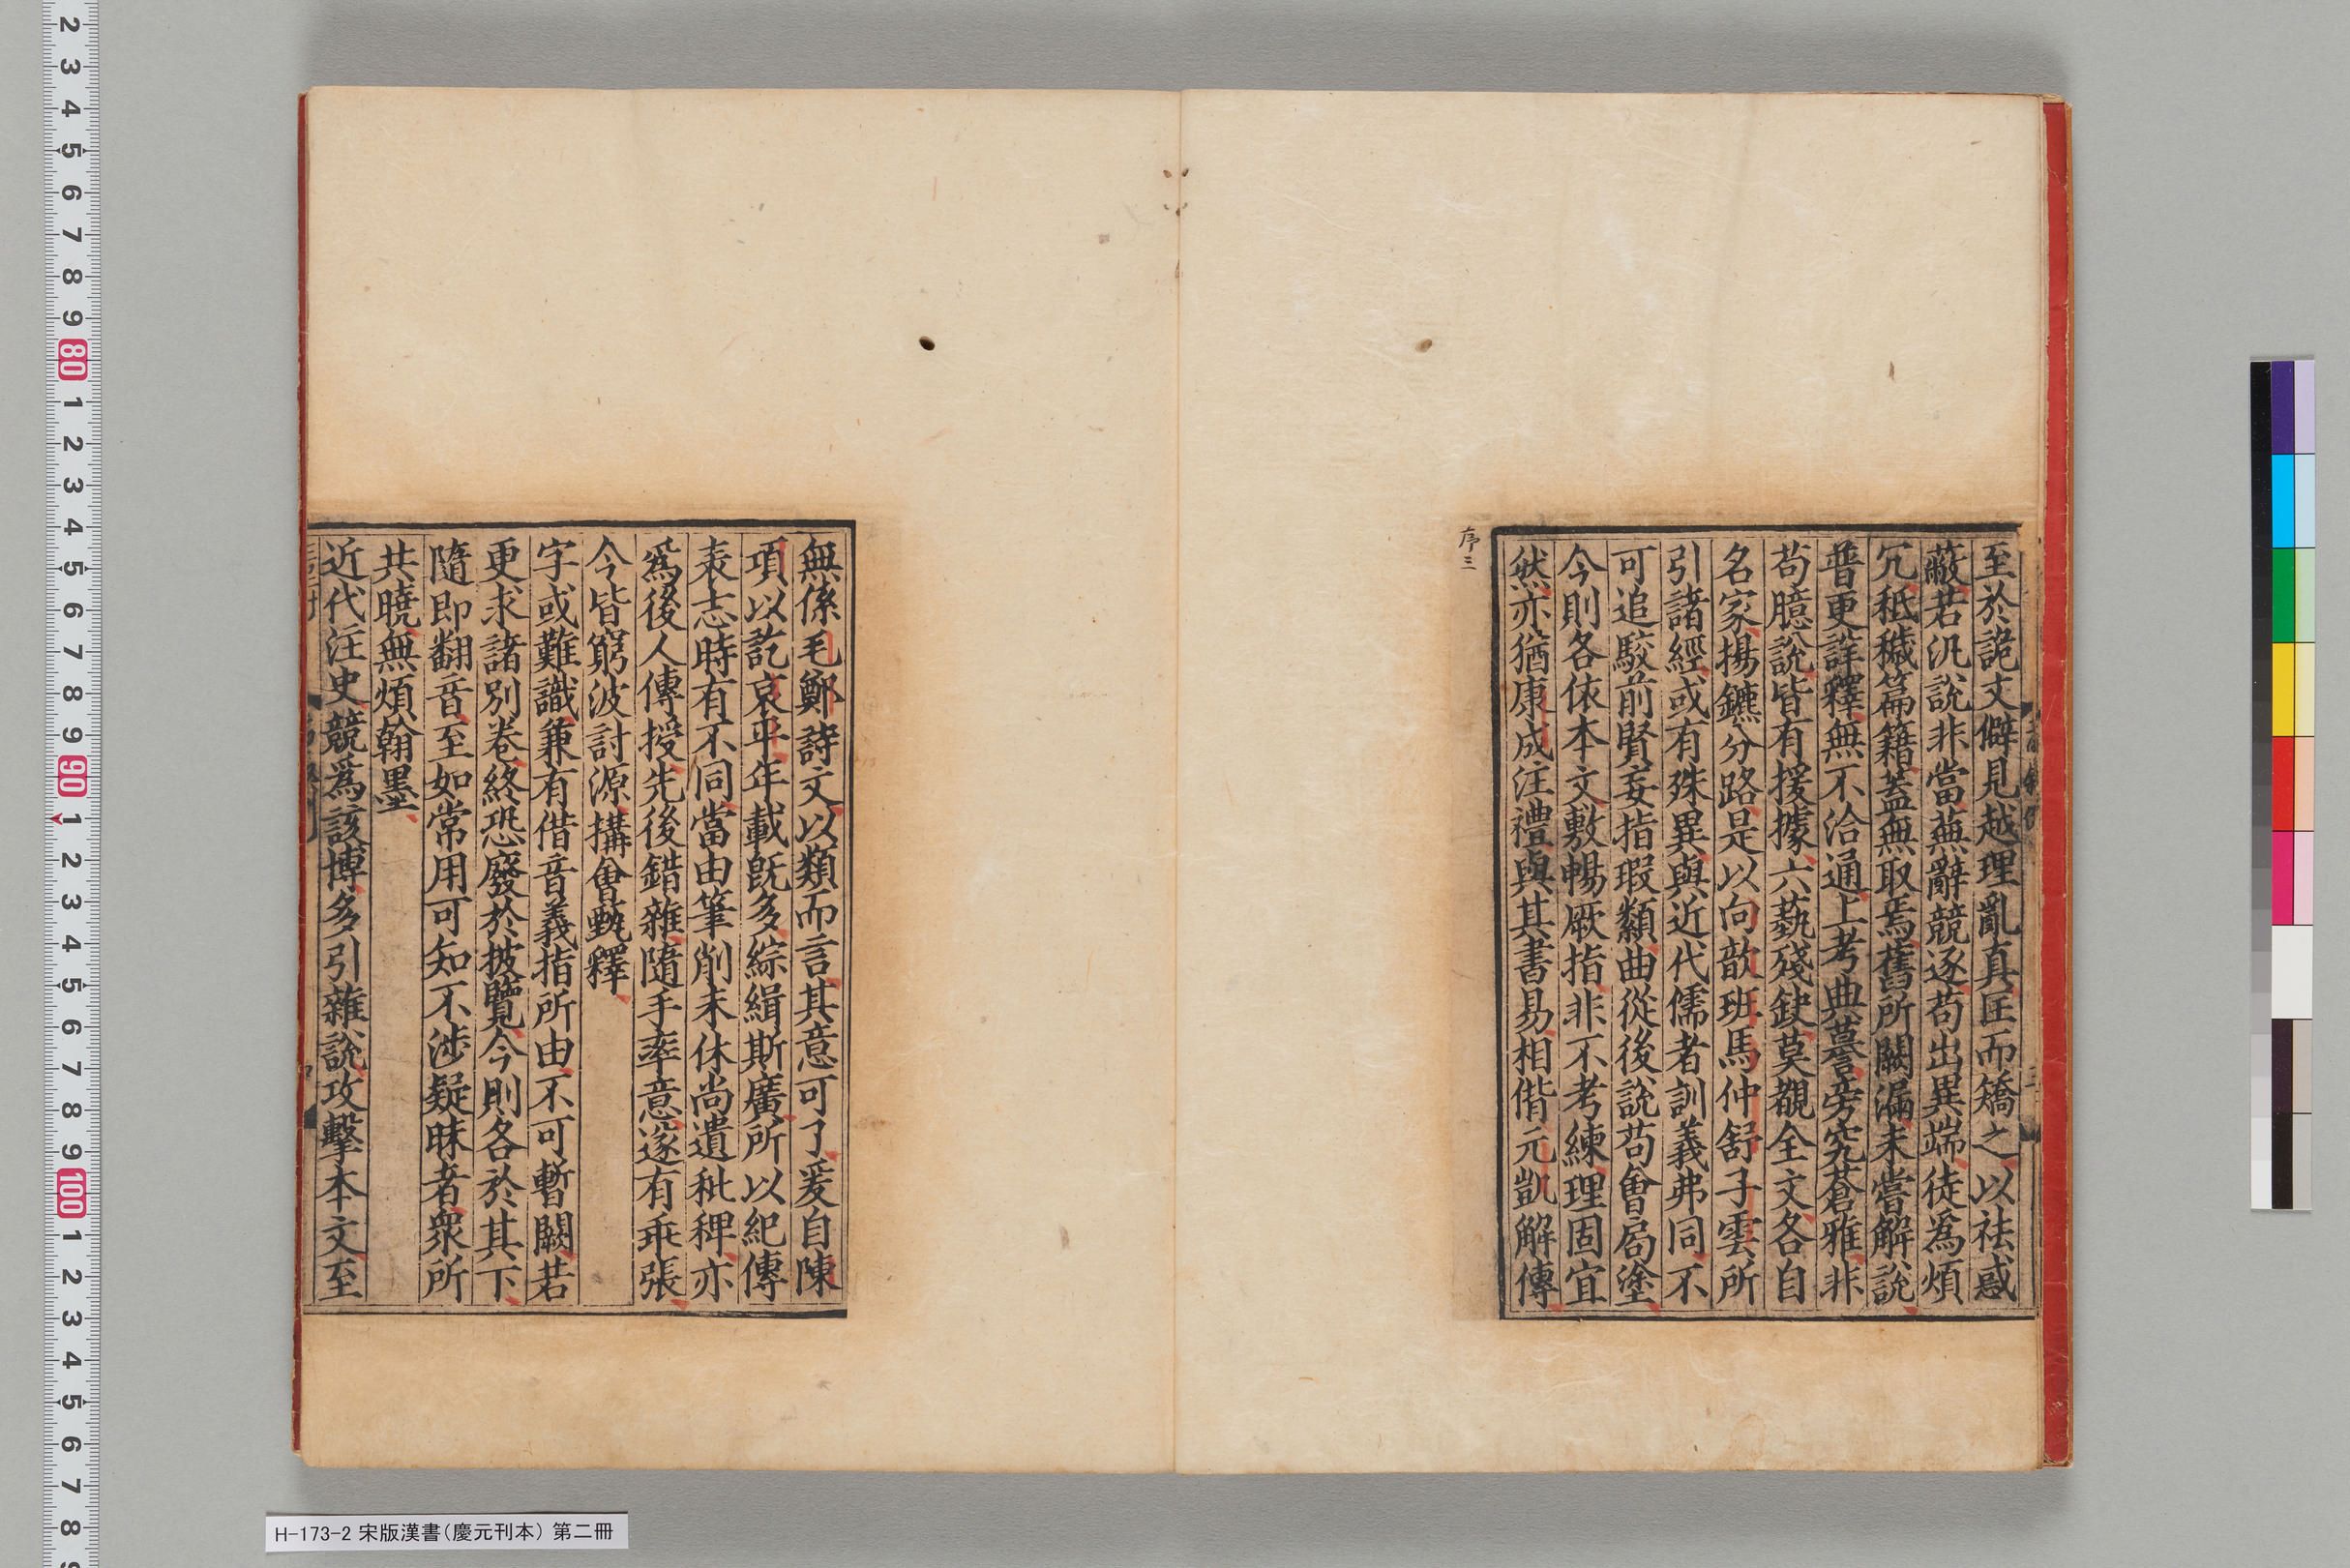 至於詭文僻見越理亂真匡而矯之以袪惑
蔽若汎說非當蕪辭競逐苟出異端徒爲煩
冗秪穢篇籍蓋無取焉舊所闕漏未嘗解說
普更詳釋無不洽通上考典謩旁究蒼雅非
苟臆說皆有援據六藝殘缺莫覩全文各自
名家揚鑣分路是以向歆班馬仲舒子雲所
引諸經或有殊異與近代儒者訓義弗同不
可追駮前賢妄指瑕纇曲從後說苟會扃塗
今則各依本文敷暢厥指非不考練理固宜
然亦猶康成注禮與其書易相偕元凱解傳
序三
無係毛鄭詩文以類而言其意可了爰自陳
項以訖哀平年載旣多綜緝斯廣所以紀傳
表志時有不同當由筆削未休尚遺秕稗亦
爲後人傳授先後錯雜隨手率意遂有乖張
今皆窮波討源搆會甄釋
字或難識兼有借音義指所由不可暫闕若
更求諸別卷終恐廢於披覽今則各於其下
隨即翻音至如常用可知不涉疑昧者衆所
共曉無煩翰墨
近代注史競爲該博多引雜說攻擊本文至
H-173-2 宋版漢書（慶元刊本） 第二冊
2 3 4 5 6 7 8 9 80 1 2 3 4 5 6 7 8 9 90 1 2 3 4 5 6 7 8 9 100 1 2 3 4 5 6 7 8 9